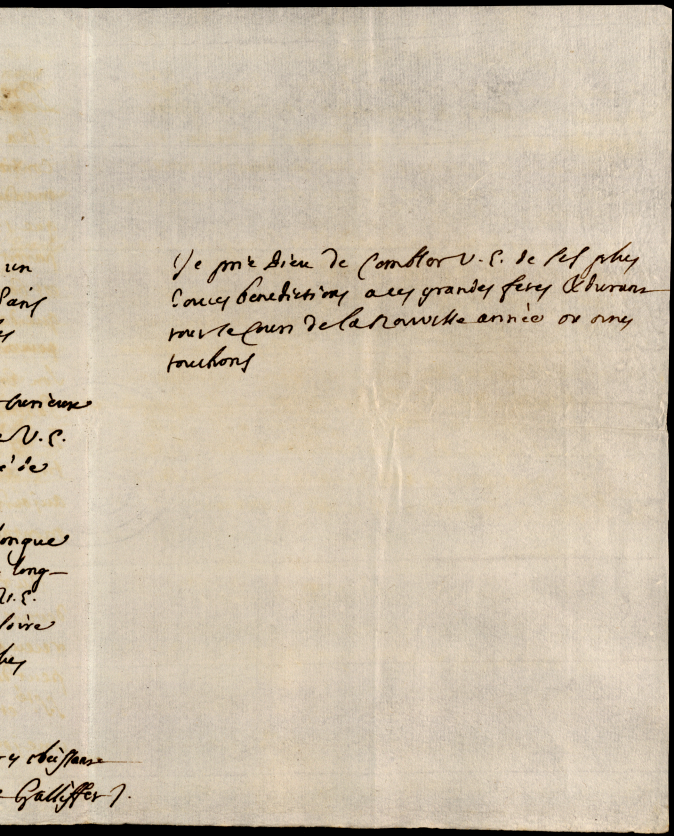 un
sans
curieux
V. E.
é de
longue
long-
V. E.
loire
obeissant
Galliffet J.
Je prie Dieu de combler V. E. de ses plus
douces benedictions a ces grandes fetes & durant
tout le cours de la nouvelle année ou nous
touchons